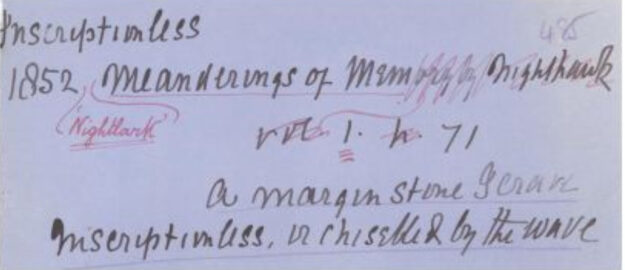 Inscriptionless 485
1852, Meanderings of Memory by Nighthawk
'Nightlark'
vol 1. p. 71
a margin stone I crave
Inscriptionless, or chiselled by the wave